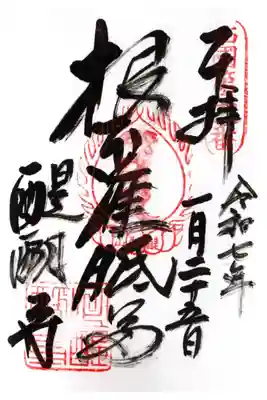 奉拝
令和七年
一月二十五日
根本准胝尊
醍醐寺